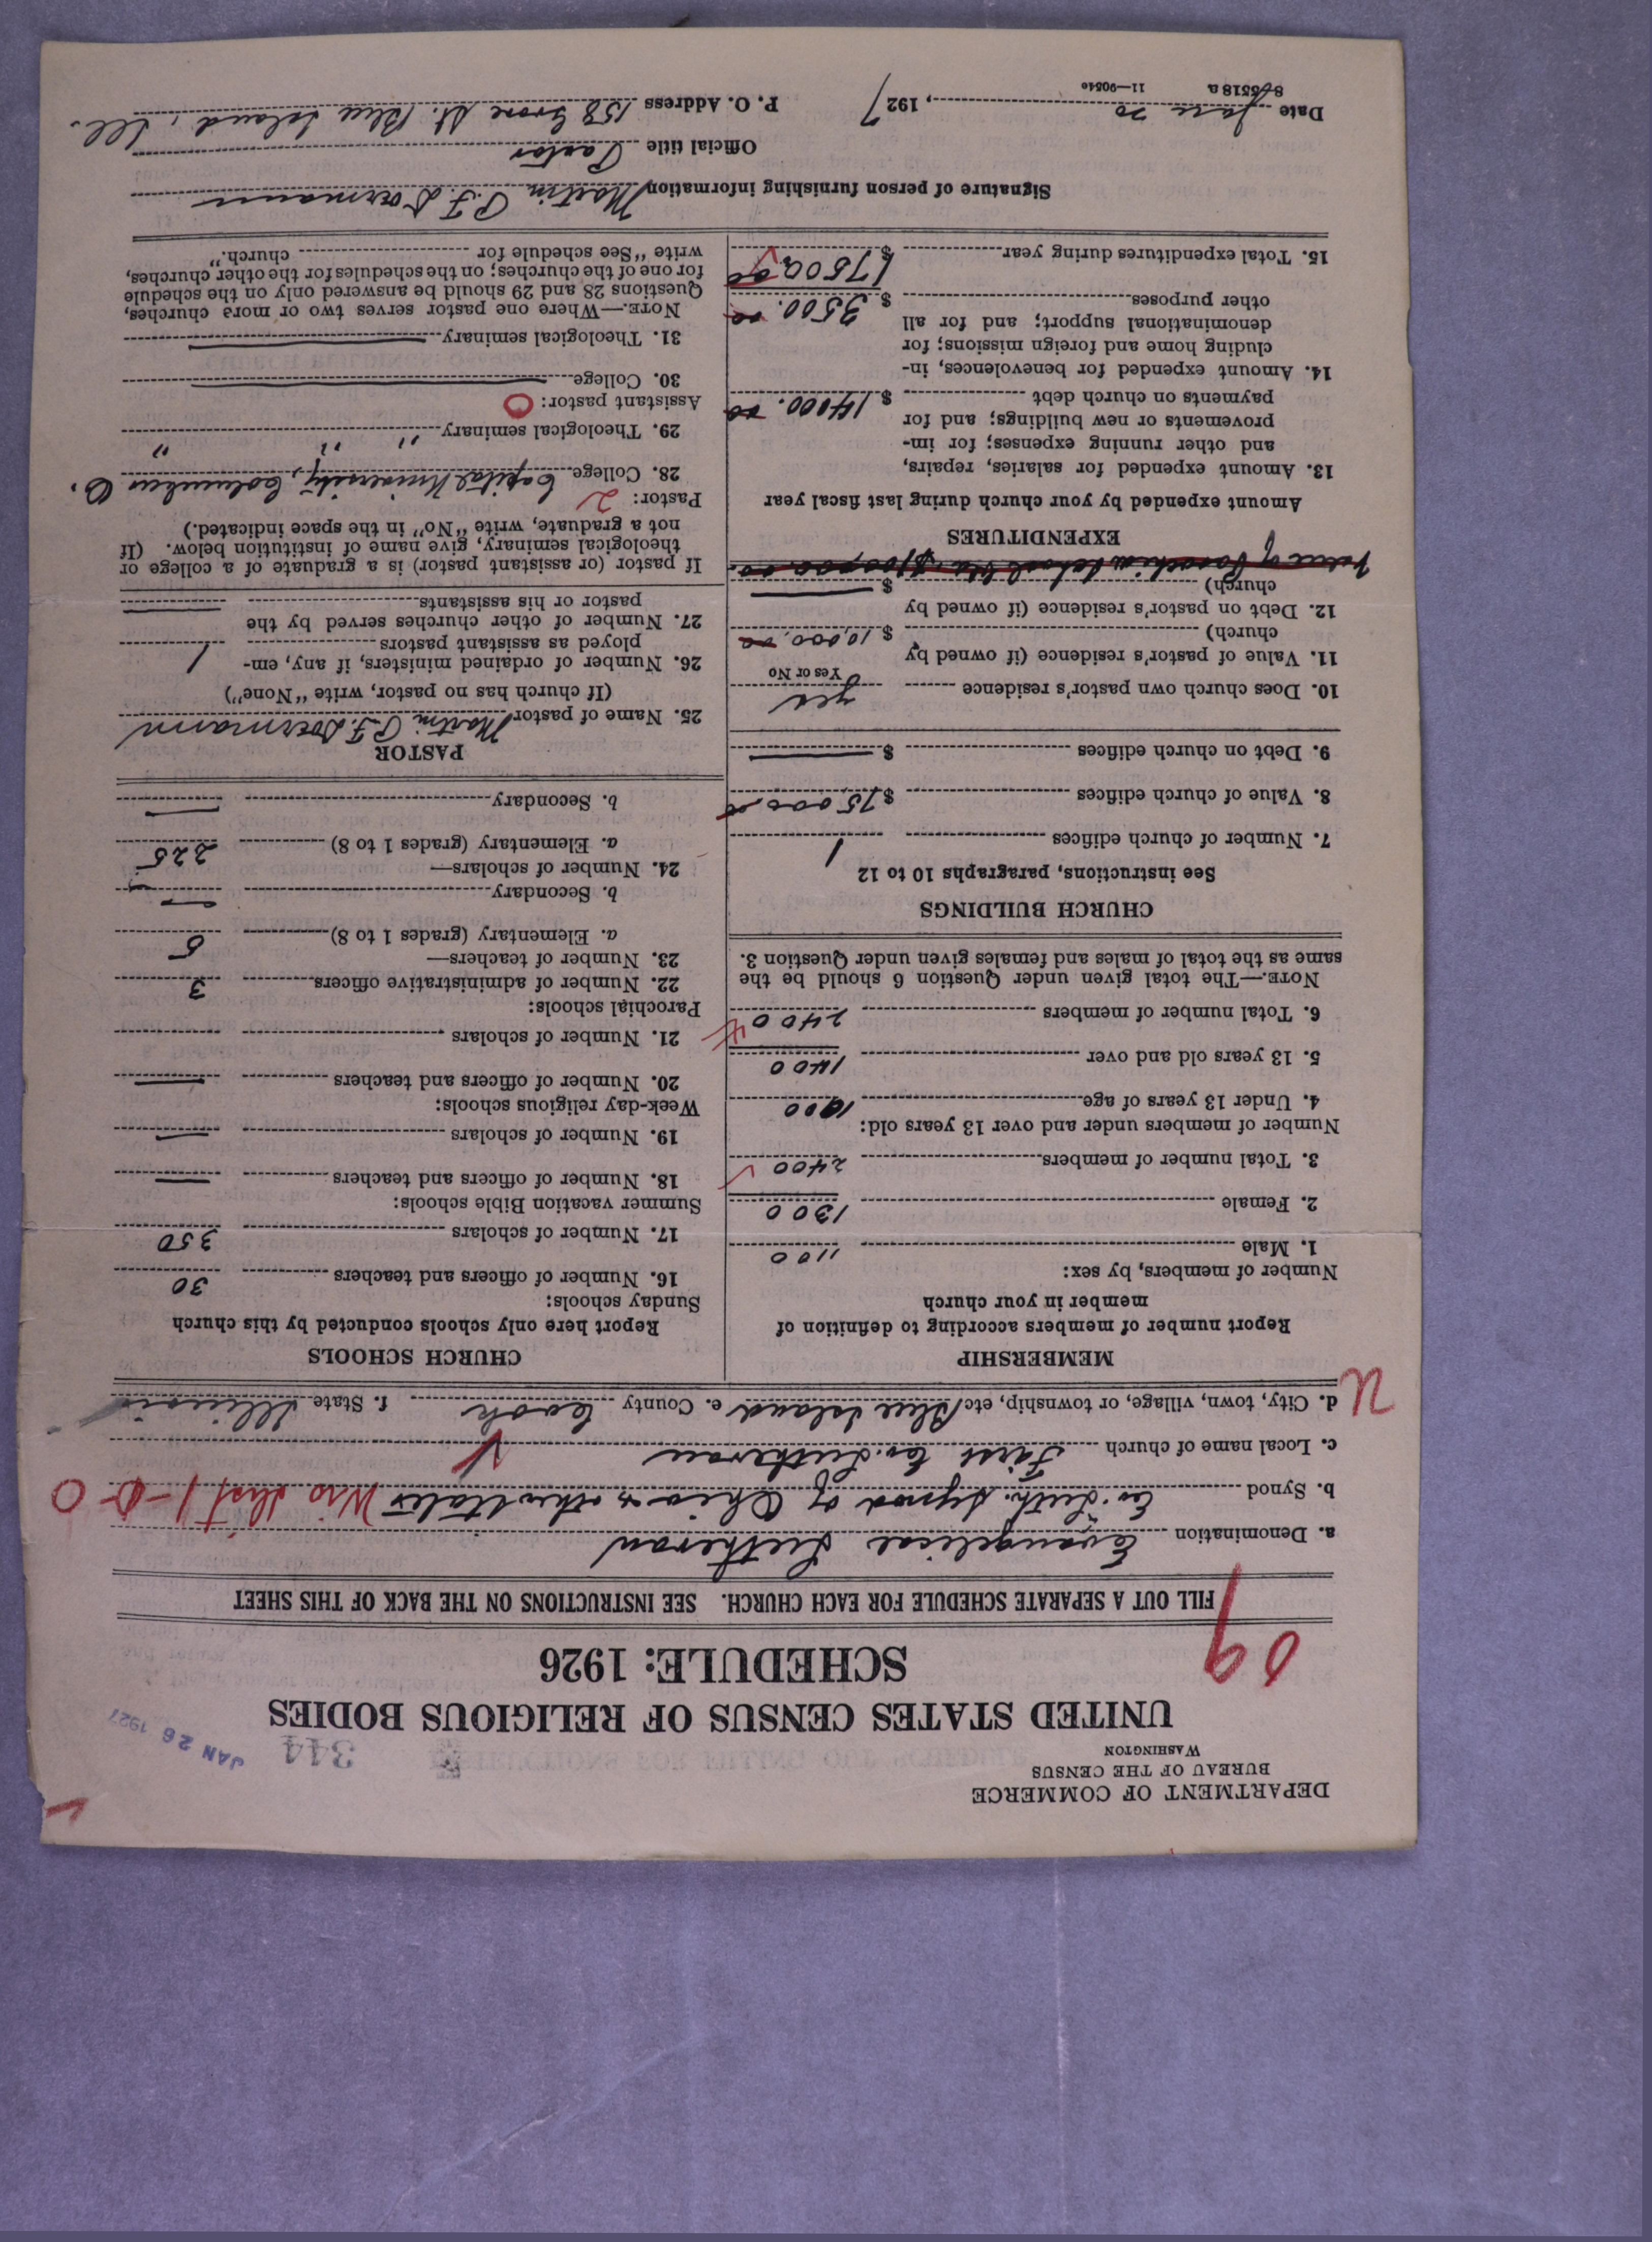 DEPARTMENT OF COMMERCE
BUREAU OF THE CENSUS
WASHINGTON
344
JAN 26 1927
UNITED STATES CENSUS OF RELIGIOUS BODIES
SCHEDULE: 1926
09
FILL OUT A SEPARATE SCHEDULE FOR EACH CHURCH. SEE INSTRUCTIONS ON THE BACK OF THIS SHEET
a. Denomination Evangelical Lutheran
b. Synod Ev. Luth. Synod of Ohio & other States Wis Dist 1-0-0
c. Local name of church First Ev. Lutheran
d. City, town, village, or township, etc Blue Island e. County Cook f. State Illinois
MEMBERSHIP
Report number of members according to definition of
member in your church
Number of members, by sex:
1. Male 1100
2. Female 1300
3. Total number of members 2400
Number of members under and over 13 years old:
4. Under 13 years of age 1000
5. 13 years old and over 1400
6. Total number of members 2400
NOTE.—The total given under Question 6 should be the
same as the total of males and females given under Question 3.
CHURCH BUILDINGS
See instructions, paragraphs 10 to 12
7. Number of church edifices 1
8. Value of church edifices $75000.00
9. Debt on church edifices $
10. Does church own pastor's residence yes
Yes or No
11. Value of pastor's residence (if owned by
church) $10,000.00
12. Debt on pastor's residence (if owned by
church) $
Value of Parochial School $100,000.00
EXPENDITURES
Amount expended by your church during last fiscal year
13. Amount expended for salaries, repairs,
and other running expenses; for im-
provements or new buildings; and for
payments on church debt $14000.00
14. Amount expended for benevolences, in-
cluding home and foreign missions; for
denominational support; and for all
other purposes $3500.00
15. Total expenditures during year $17500.00
CHURCH SCHOOLS
Report here only schools conducted by this church
Sunday schools:
16. Number of officers and teachers 30
17. Number of scholars 350
Summer vacation Bible schools:
18. Number of officers and teachers
19. Number of scholars
Week-day religious schools:
20. Number of officers and teachers
21. Number of scholars
Parochial schools:
22. Number of administrative officers 3
23. Number of teachers—
a. Elementary (grades 1 to 8) 5
b. Secondary
24. Number of scholars—
a. Elementary (grades 1 to 8) 225
b. Secondary
PASTOR
25. Name of pastor Martin P. F. Doermann
(If church has no pastor, write "None")
26. Number of ordained ministers, if any, em-
ployed as assistant pastors 1
27. Number of other churches served by the
pastor or his assistants
If pastor (or assistant pastor) is a graduate of a college or
theological seminary, give name of institution below. (If
not a graduate, write "No" in the space indicated.)
Pastor: 2
28. College Capital University, Columbus O.
29. Theological seminary " " "
Assistant pastor: O
30. College
31. Theological seminary
NOTE.—Where one pastor serves two or more churches,
Questions 28 and 29 should be answered only on the schedule
for one of the churches; on the schedules for the other churches,
write "See schedule for church."
Signature of person furnishing information Martin P. F. Doermann
Official title Pastor
Date Jan 20, 1927 P. O. Address 158 Grove St. Blue Island, Ill.
8-5518 a 11—9054c